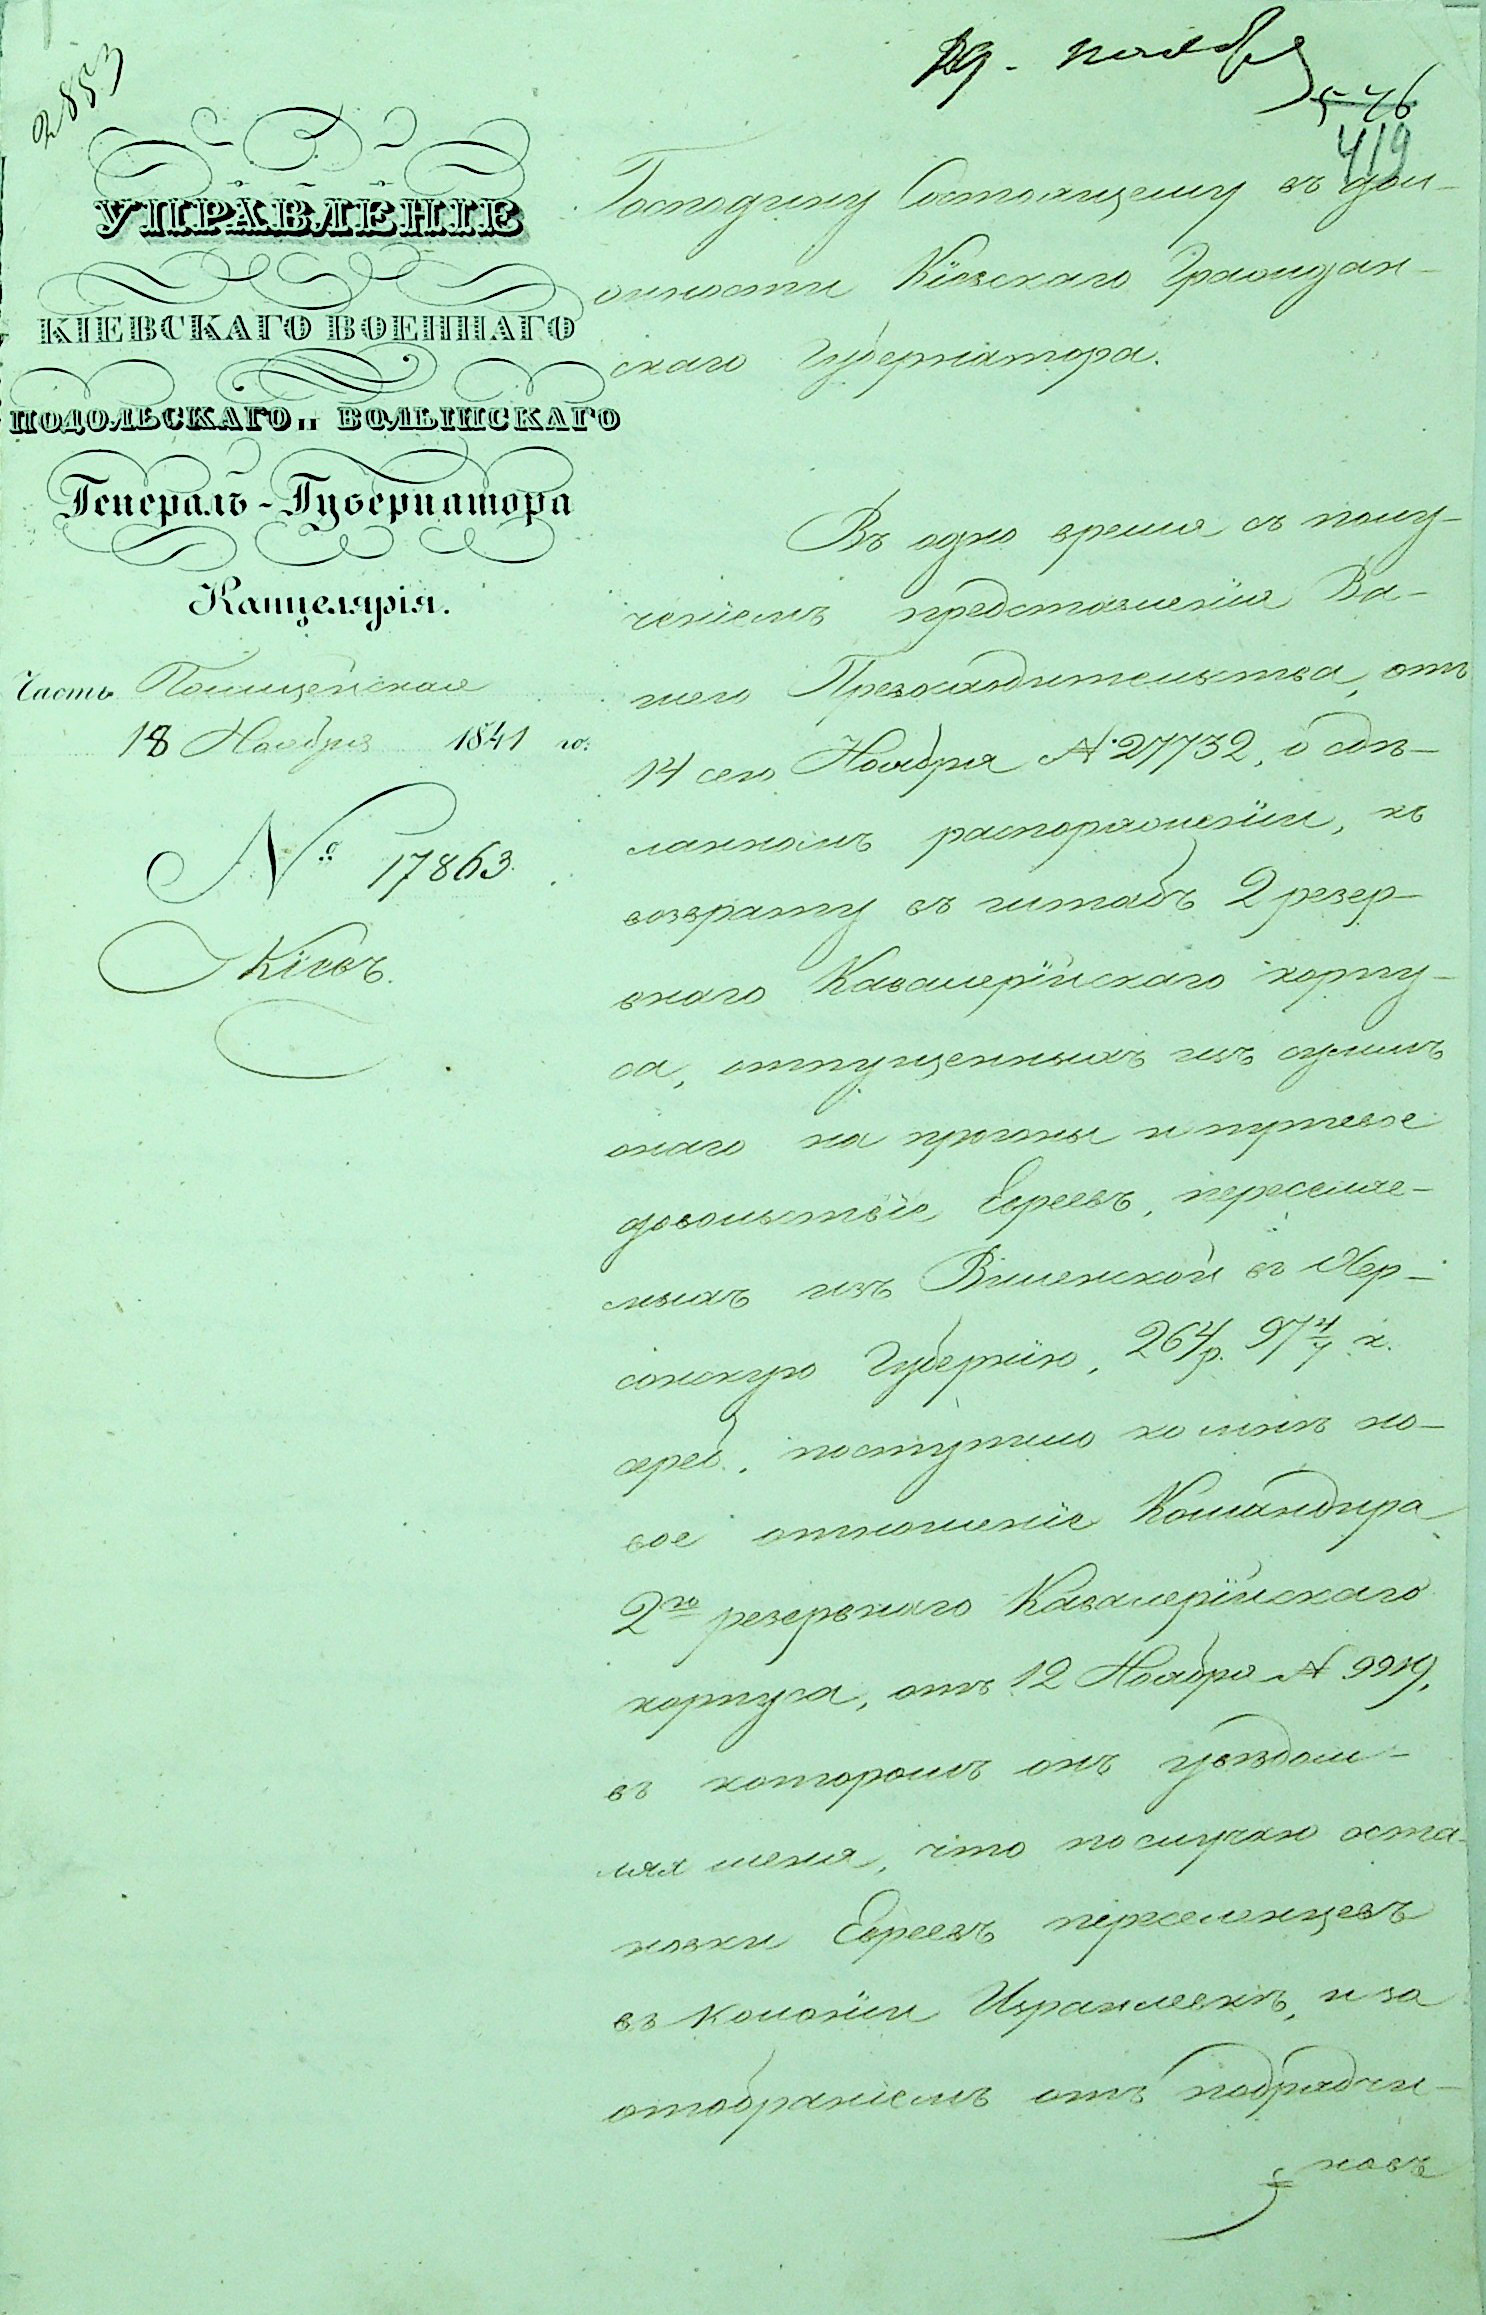 2853
19. ноября
546
419
УПРАВЛЕНІЕ
КІЕВСКАГО ВОЕННАГО
ПОДОЛЬСКАГО и ВОЛЫНСКАГО
Генералъ-Губернатора
Канцелярія.
Часть Полицейская
18 Ноября 1841 го.
№ 17863.
Кіевъ.
Господину Состоящему въ дол-
жности Кіевскаго Граждан-
скаго Губернатора.
Въ одно время съ полу-
ченіемъ представленія Ва-
шего Превосходительства, отъ
14 сего Ноября № 27732, о сдѣ-
ланномъ распоряженіи, къ
возврату въ штабъ 2 резер-
внаго Кавалерійскаго корпу-
са, отпущенныхъ изъ суммъ
онаго на прогоны и путевое
довольствіе Евреевъ, переселяе-
мыхъ изъ Виленской въ Хер-
сонскую Губернію, 264 р. 97 4/7 к.
сереб., поступило ко мнѣ но-
вое отношеніе Командира
2го резервнаго Кавалерійскаго
корпуса, отъ 12 Ноября №
въ которомъ онъ увѣдом-
ляя меня, что по случаю оста-
новки Евреевъ переселенцевъ
въ Колоніи Израилевкѣ, и за
отобраніемъ отъ подрядчи-
ковъ